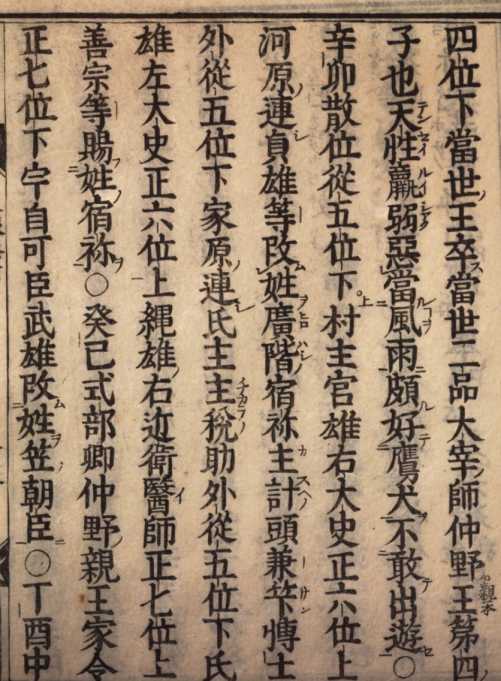 四位下當世王卒當世二品大宰師仲野王第四
子也天性羸弱惡當風雨頗好鷹犬不敢出遊○
辛卯散位從五位下村主官雄右大史正六位上
河原連貞雄等改姓廣階宿祢主計頭兼筭博士
外從五位下家原連氏主主稅助外從五位下氏
雄左大史正六位上縄雄右近衛醫師正七位上
善宗等賜姓宿祢○癸巳式部卿仲野親王家令
正七位下宇自可臣武雄改姓笠朝臣○丁酉中